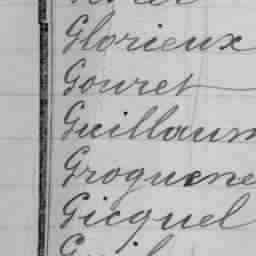 Glorieux
Gouret
Guillaum
Groguene
Gicquel